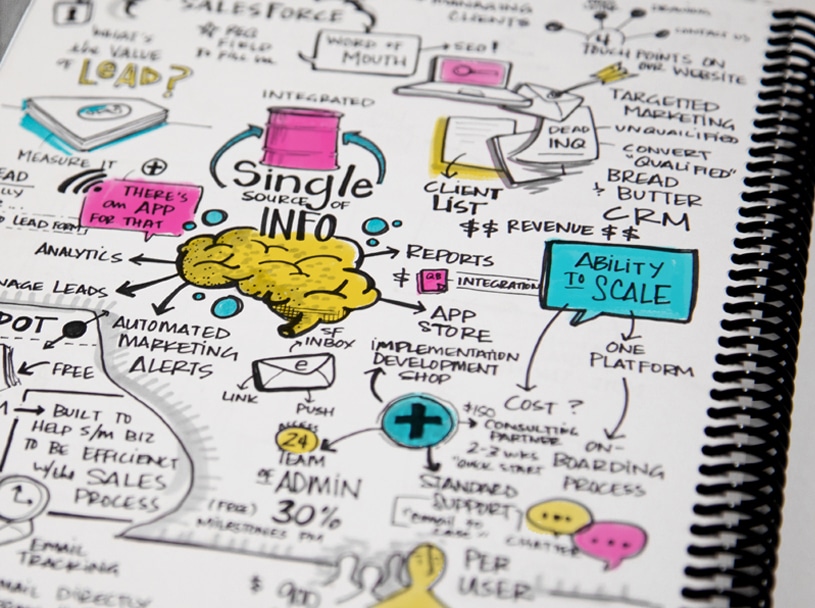 SALESFORCE
MANAGING
CLIENTS
CONTACT US
4
TOUCH POINTS ON
OUR WEBSITE
WHAT'S
the VALUE
of LEAD?
FIELD
WORD OF
MOUTH
SEO!
INTEGRATED
Single
SOURCE OF
INFO
MEASURE IT
THERE'S
an APP
FOR THAT
LEAD FORM
DEAD
INQ
CLIENT
LIST
TARGETTED
MARKETING
UNQUALIFIED
CONVERT
"QUALIFIED"
BREAD
& BUTTER
CRM
$$ REVENUE $$
ANALYTICS
REPORTS
$ QB INTEGRATION
ABILITY
TO SCALE
NAGE LEADS
AUTOMATED
MARKETING
ALERTS
APP
STORE
SF
INBOX
e
LINK
PUSH
IMPLEMENTATION
DEVELOPMENT
SHOP
ONE
PLATFORM
COST?
ON-
BOARDING
PROCESS
DOT
FREE
BUILT TO
HELP S/M BIZ
TO BE EFFICIENT
w/the SALES
PROCESS
24
TEAM
OF ADMIN
(FREE) 30%
$150
CONSULTING
PARTNER
2-3 WKS
"QUICK START"
STANDARD
SUPPORT
EMAIL
TRACKING
MAIL DIRECTLY
PER
USER